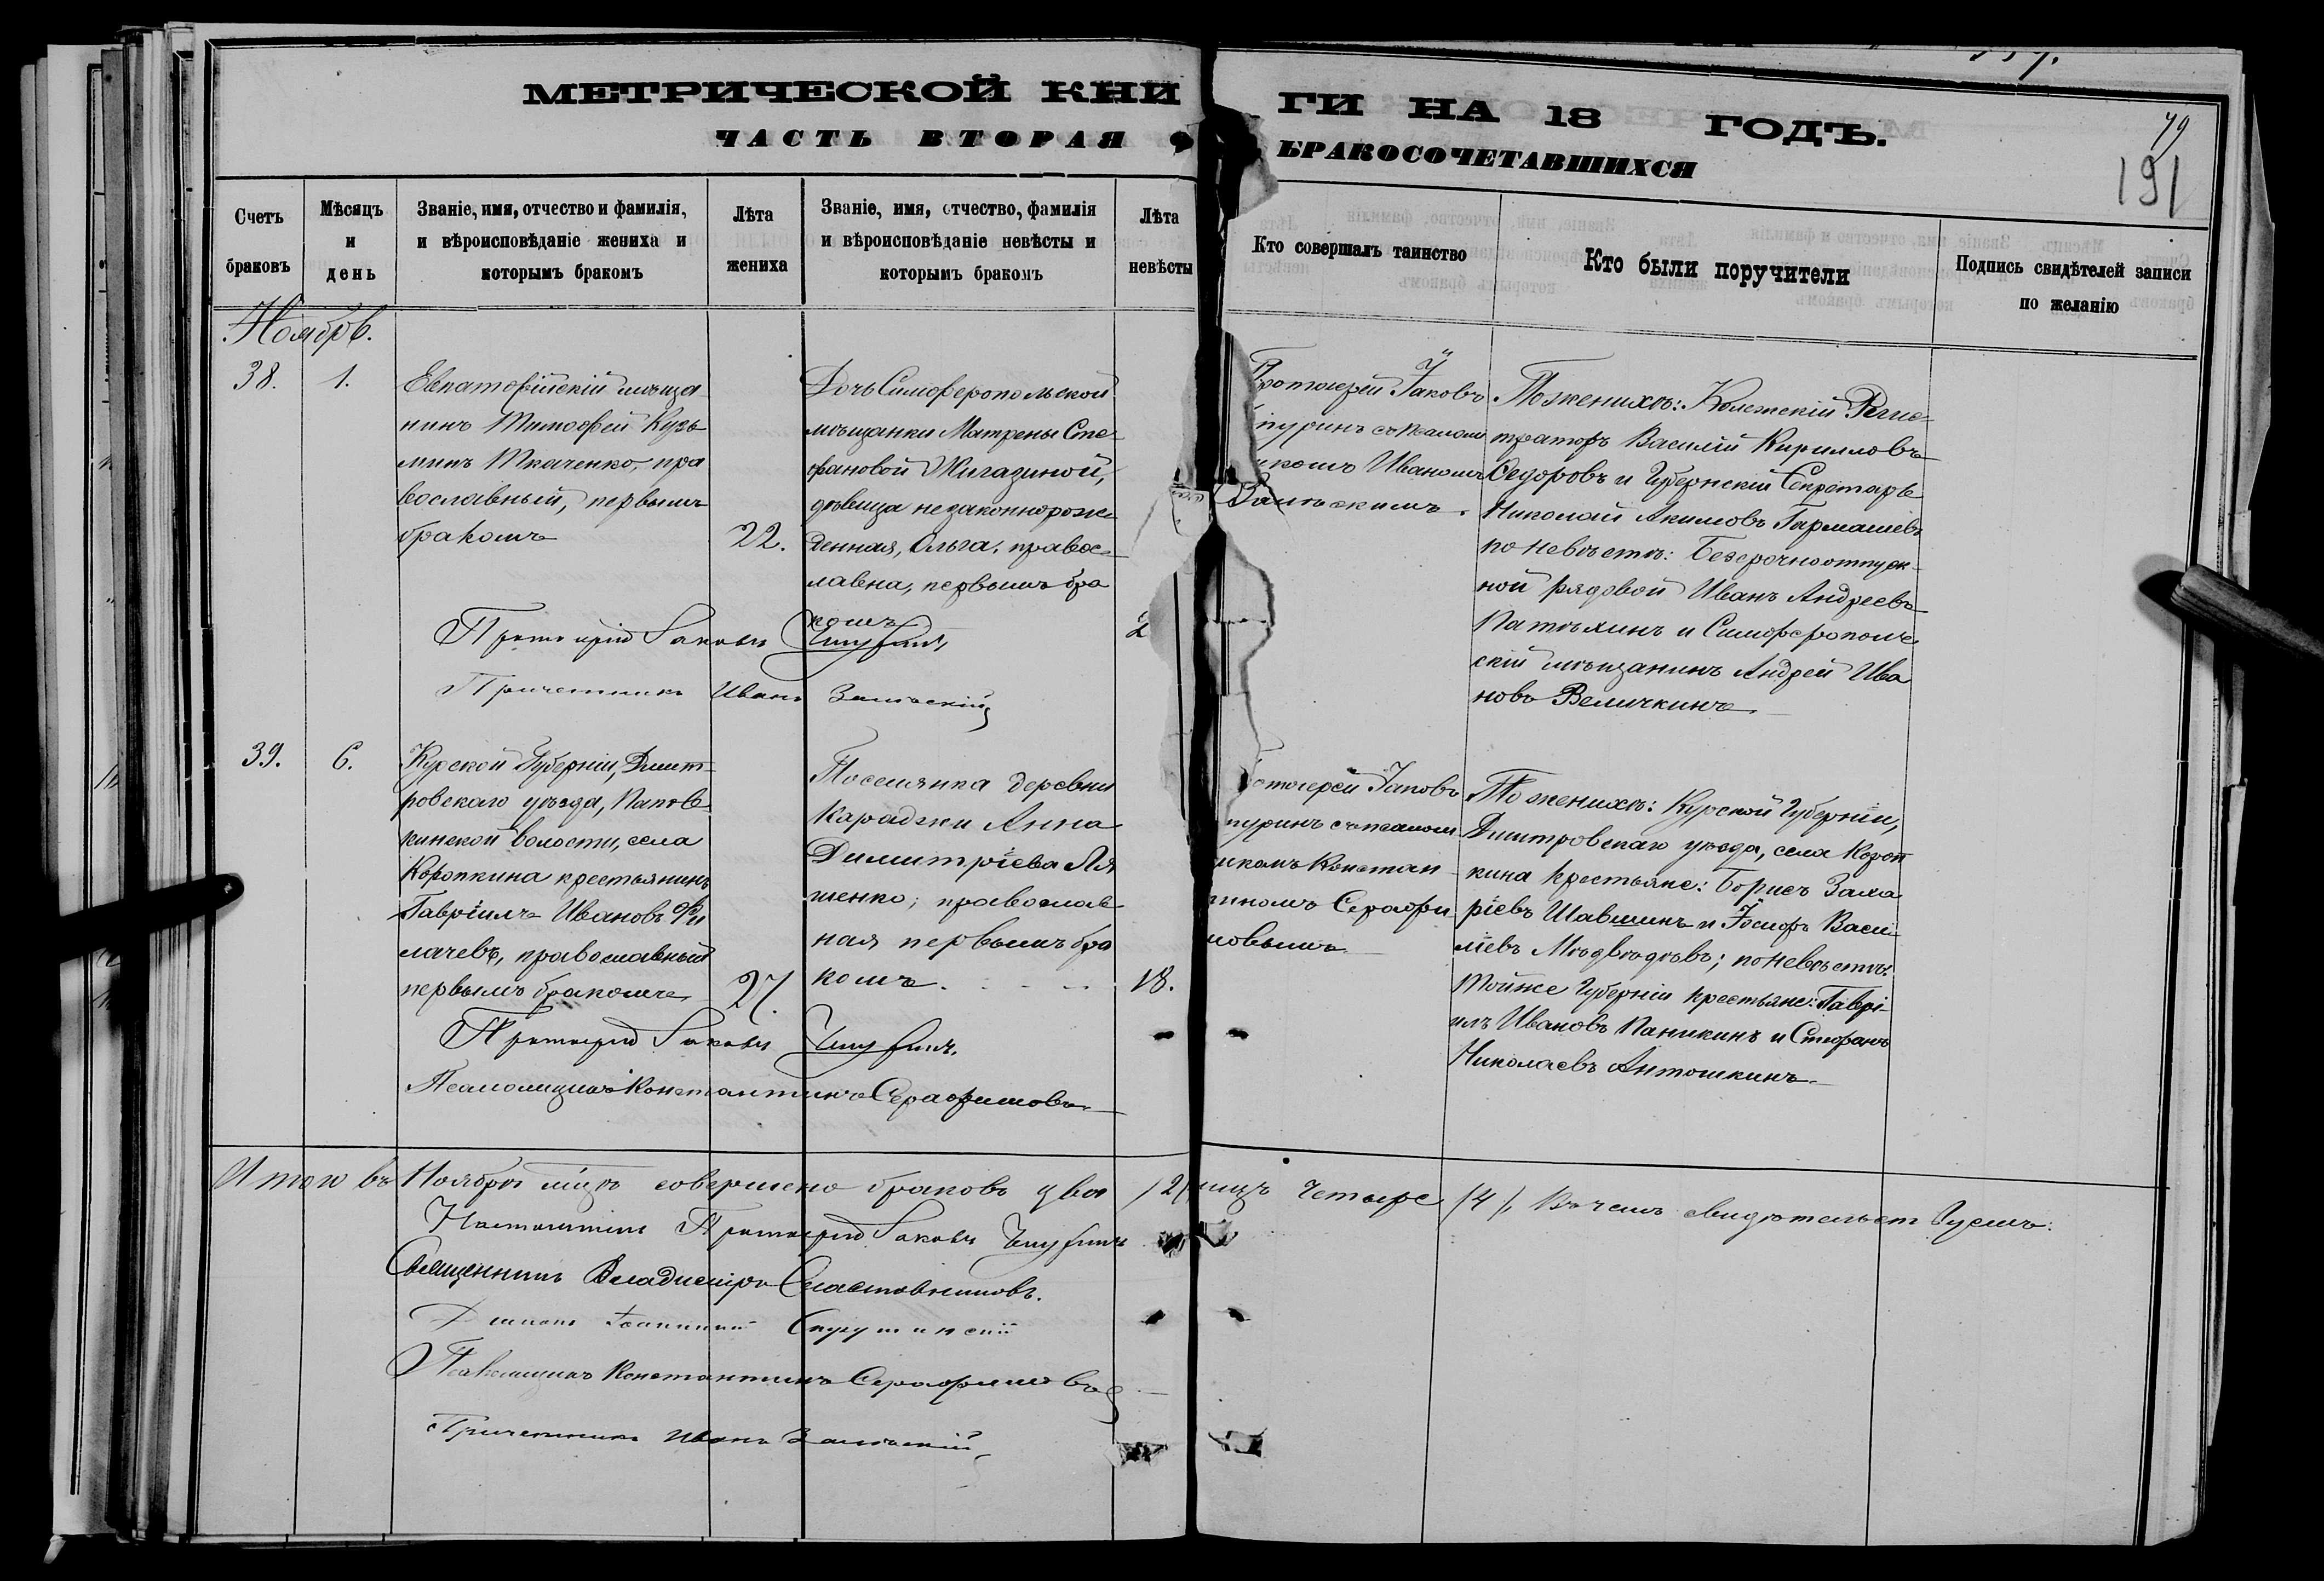 МЕТРИЧЕСКОЙ КНИГИ НА 18 ГОДЪ.
ЧАСТЬ ВТОРАЯ О БРАКОСОЧЕТАВШИХСЯ
79
191
Счетъ браковъ
Мѣсяцъ и день
Званіе, имя, отчество и фамилія, и вѣроисповѣданіе жениха и которымъ бракомъ
Лѣта жениха
Званіе, имя, отчество, фамилія и вѣроисповѣданіе невѣсты и которымъ бракомъ
Лѣта невѣсты
Кто совершалъ таинство
Кто были поручители
Подпись свидѣтелей записи по желанію
Ноябрь.
38.
1.
Евпаторійскій мѣща
нинъ Тимофей Кузь
минъ Ткаченко, пра
вославный, первымъ
бракомъ
22.
Дочь Симферопольской
мѣщанки Матрены Сте
фановой Жигазиной,
дѣвица незаконнорож
денная, Ольга, правос
лавна, первымъ бра
комъ
2
Протоіерей Іаковъ
пуринъ съ псалом
комъ Иваномъ
По женихѣ: Колежскій Регис
траторъ Василій Кирилловъ
Ѳедоровъ и Губернскій Секретарь
Николай Акимовъ Гармашевъ
по невѣстѣ: Безсрочноотпуск
ной рядовой Иванъ Андреевъ
Патѣхинъ и Симферополь
скій мѣщанинъ Андрей Ива
новъ Величкинъ.
Протоіерей Іаковъ Чпуринъ
Причетникъ Иванъ
39.
6.
Курской Губерніи, Дмит
ровскаго уѣзда,
кинской волости, села
Коропкина крестьянинъ
Гавріилъ Ивановъ Фи
лачевъ, православный
первымъ бракомъ
27.
Поселянка деревни
Караджи Анна
Димитріева Ля
шенко, православ
ная первымъ бра
комъ
18.
отоіерей Іаковъ
пуринъ съ псалом
щикомъ Констан
тиномъ Серафи
мовымъ
По женихѣ: Курской Губерніи,
Дмитровскаго уѣзда, села Короп
кина крестьяне: Борисъ Заха
ріевъ Шавшинъ и Іосифъ Васи
ліевъ Мѣдвѣдевъ; по невѣстѣ:
тойже Губерніи крестьяне: Гаврі
илъ Ивановъ Паникинъ и Стефанъ
Николаевъ Антошкинъ
Протоіерей Іаковъ Чпуринъ.
Псаломщикъ Константинъ Серафимовъ
Итого въ Ноябрѣ м-цѣ совершено браковъ два /2/ лицъ четыре /4/, въ чемъ свидѣтельствуемъ:
Настоятель Протоіерей Іаковъ Чпуринъ
Священникъ Владиміръ Сластовниковъ.
Псаломщикъ Константинъ Серафимовъ
Причетникъ Иванъ